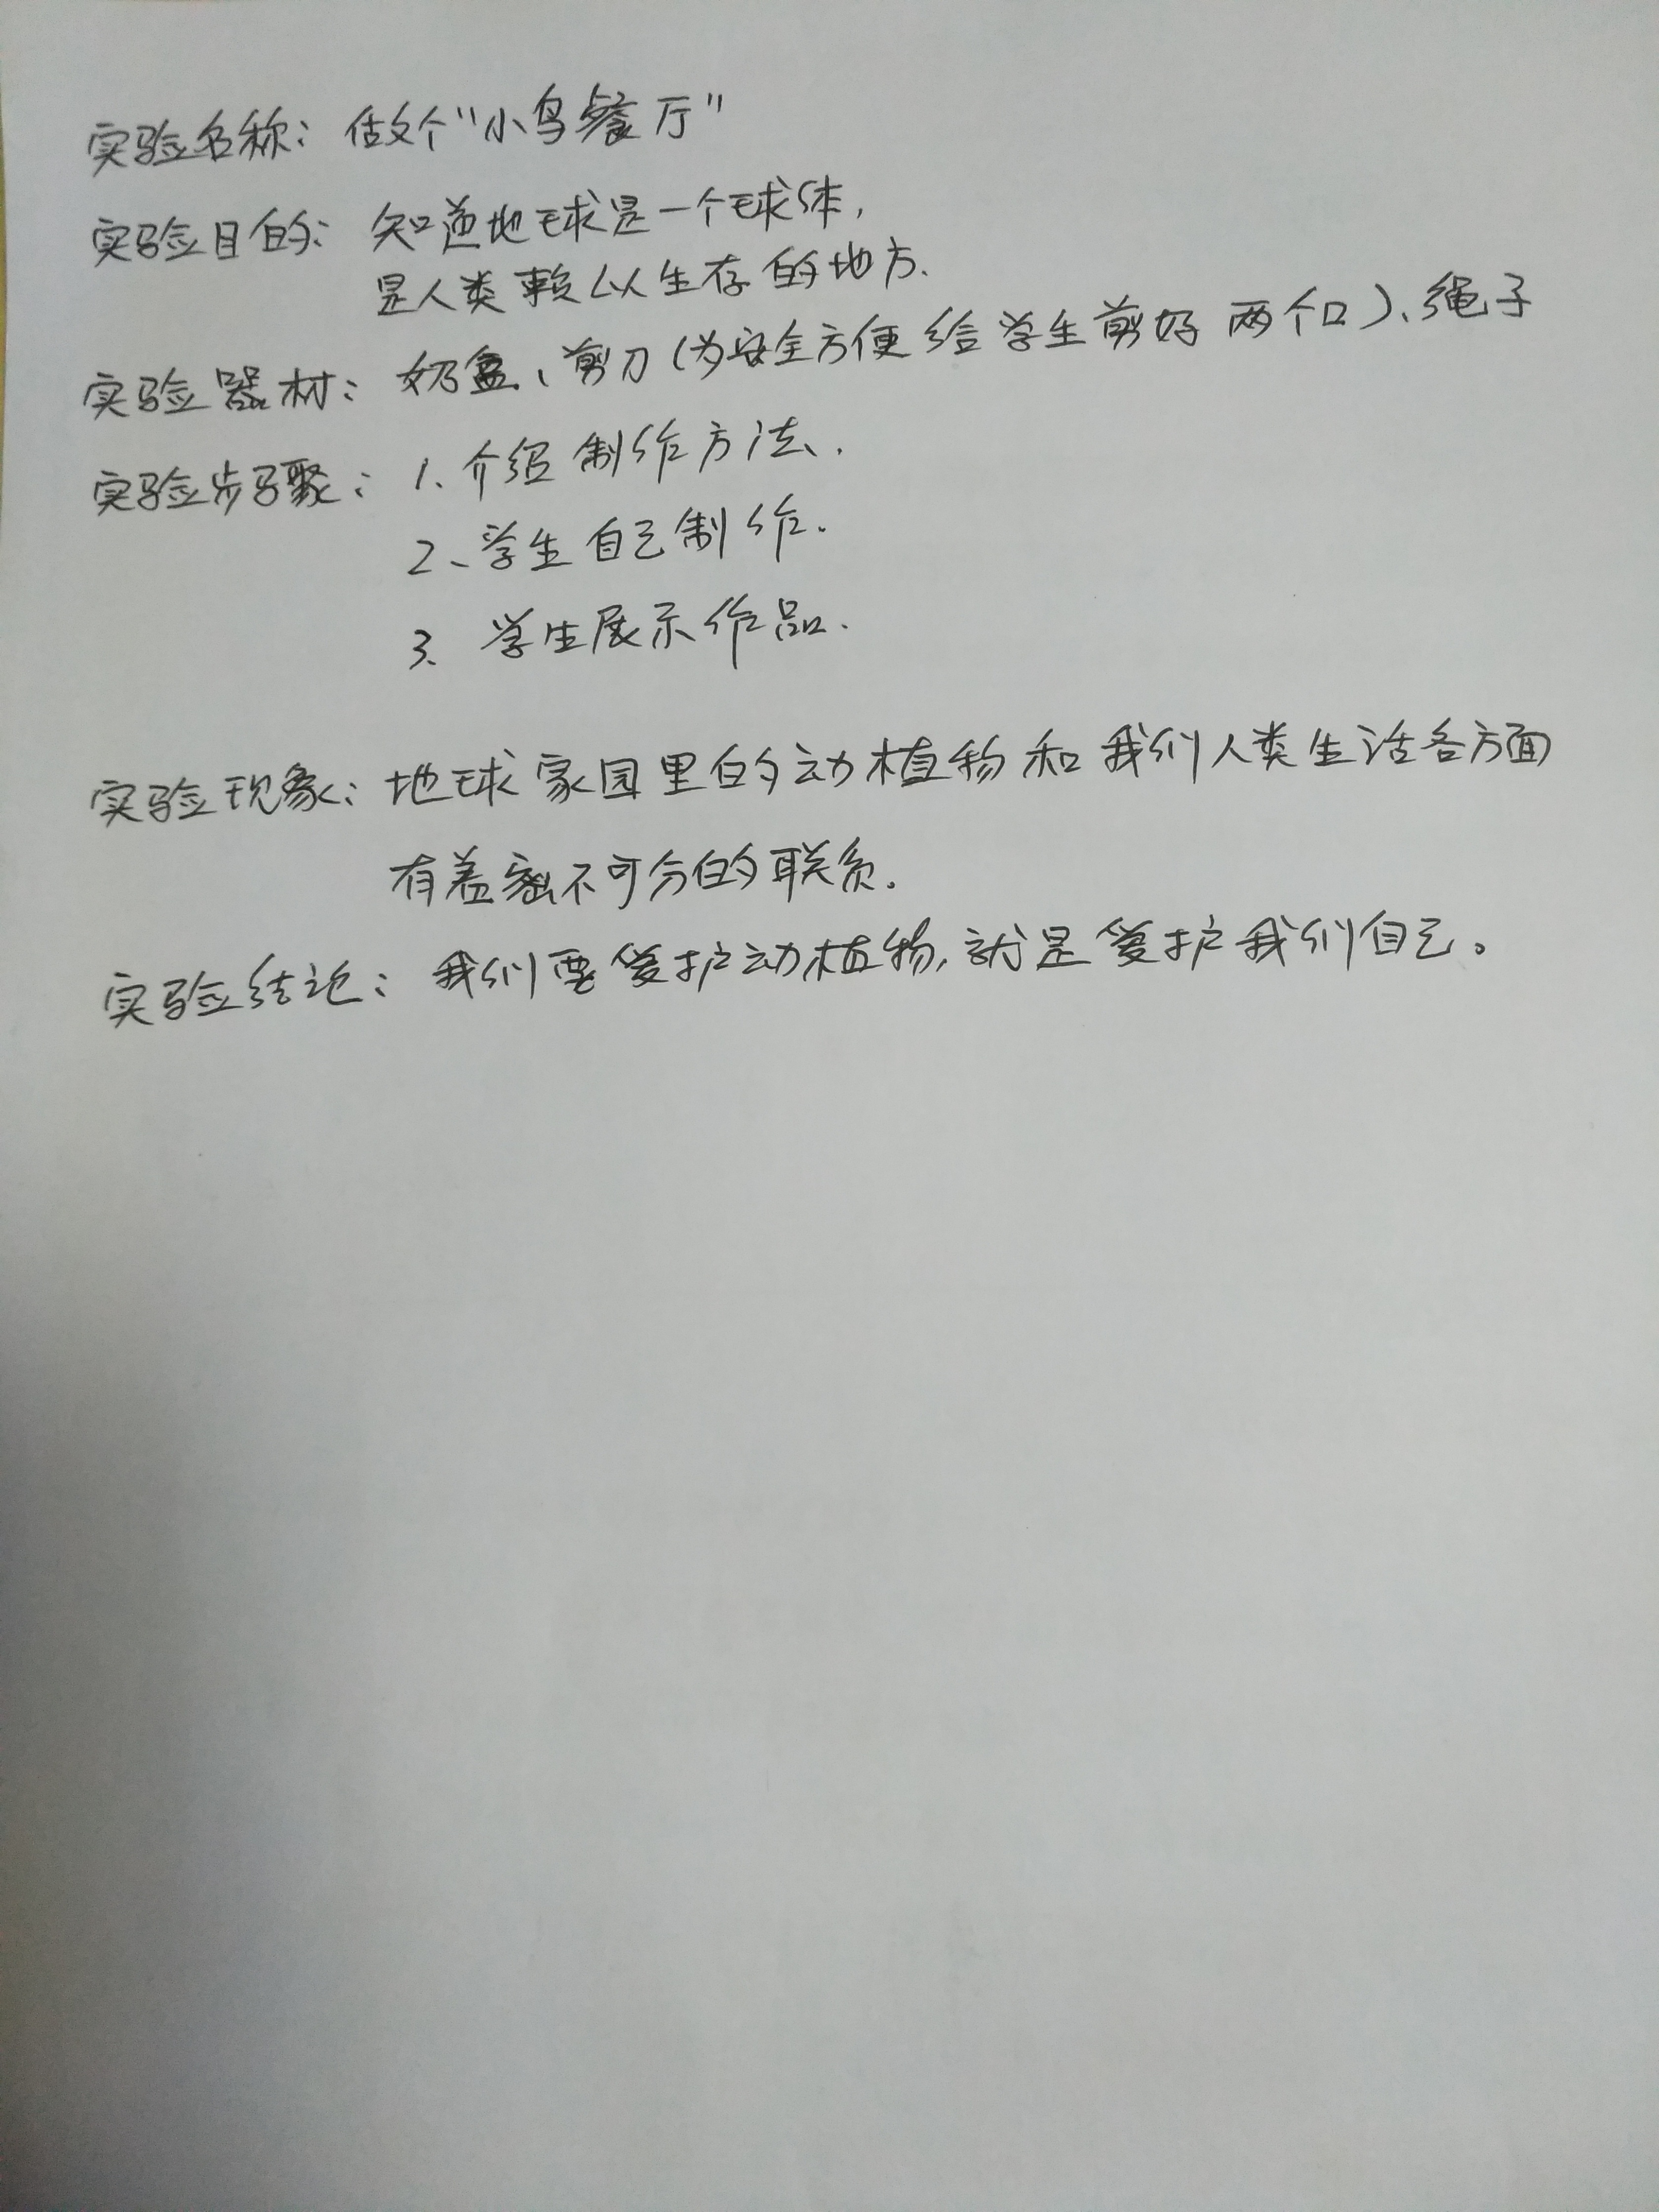 实验名称：做个“小鸟餐厅”
实验目的：知道地球是一个球体，
是人类赖以生存的地方.
实验器材：奶盒、剪刀（为安全方便给学生剪好两个口）、绳子
实验步骤：1、介绍制作方法、.
2、学生自己制作.
3、学生展示作品.
实验现象：地球家园里的动植物和我们人类生活各方面
有着密不可分的联系。
实验结论：我们要爱护动植物，就是爱护我们自己。